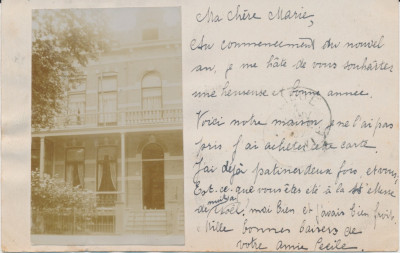 Ma chère Marie,
Au commencement du nouvel
an, je me hâte de vous souhaiter
une heureuse et bonne annee.
Voici notre maison, je ne l'ai pas
pris j'ai achete cette card.
J'ai déjà patiner deux fois, et vous,
Est-ce que vous êtes été à la Messe
de Noël, moi bien et j'avais bien froid.
Mille bonnes baisers de
votre amie Cécile.